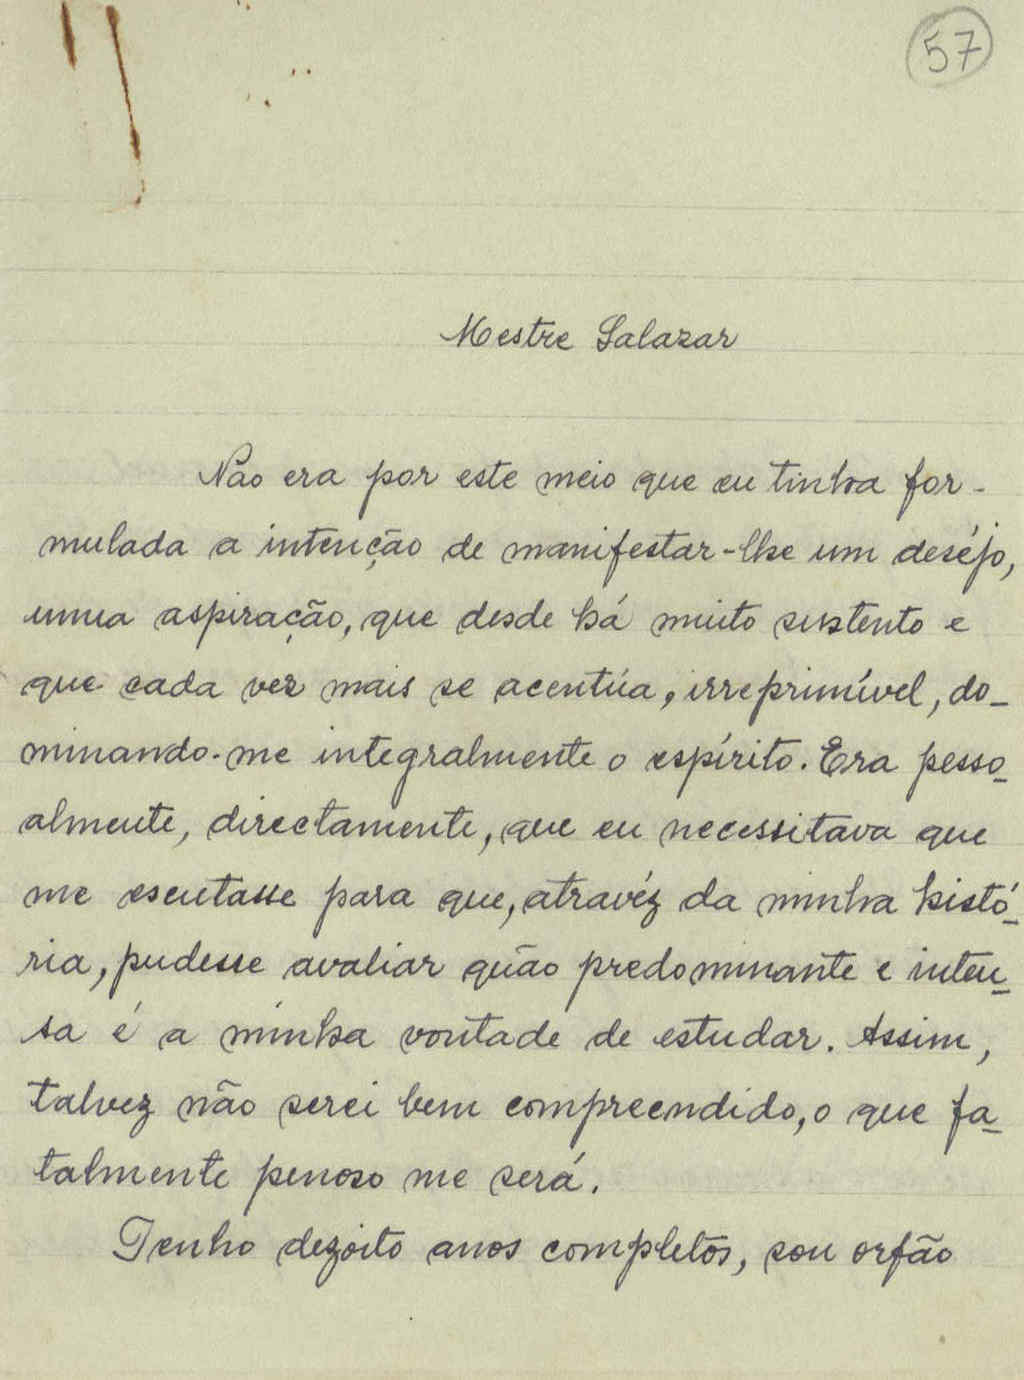 57
Mestre Salazar
Não era por este meio que eu tinha for-
mulada a intenção de manifestar-lhe um deséjo,
uma aspiração, que desde há muito sustento e
que cada vez mais se acentúa, irreprimível, do-
minando-me integralmente o espírito. Era pesso-
almente, directamente, que eu necessitava que
me escutasse para que, atravéz da minha histó-
ria, pudesse avaliar quão predominante e inten-
sa é a minha vontade de estudar. Assim,
talvez não serei bem compreendido, o que fa-
talmente penoso me será.
Tenho dezoito anos completos, sou orfão